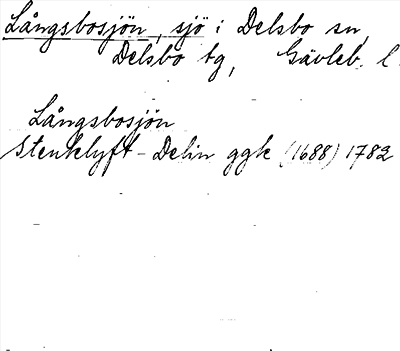 Långsbosjön, sjö i Delsbo sn,
Delsbo tg, Gävleb. l.
Långsbosjön
Stenklyft-Delin ggk (1688) 1782